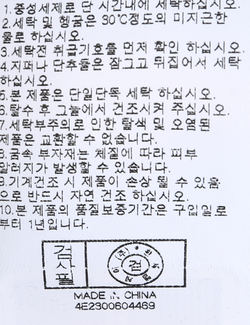 1.중성세제로 단 시간내에 세탁하십시오.
2.세탁 및 헹굼은 30℃정도의 미지근한
물로 하십시오.
3.세탁전 취급기호를 먼저 확인 하십시오.
4.지퍼나 단추들은 잠그고 뒤집어서 세탁
하십시오.
5.본 제품은 단일단독 세탁 하십시오.
6.탈수 후 그늘에서 건조시켜 주십시오.
7.세탁부주의로 인한 탈색 및 오염된
제품은 교환할 수 없습니다.
8.금속 부자재는 체질에 따라 피부
알러지가 발생할 수 있습니다.
9.기계건조 시 제품이 손상 될 수 있음
으로 반드시 자연 건조 하십시오.
10.본 제품의 품질보증기간은 구입일로
부터 1년입니다.
검사필
검
MADE IN CHINA
4E2300604469